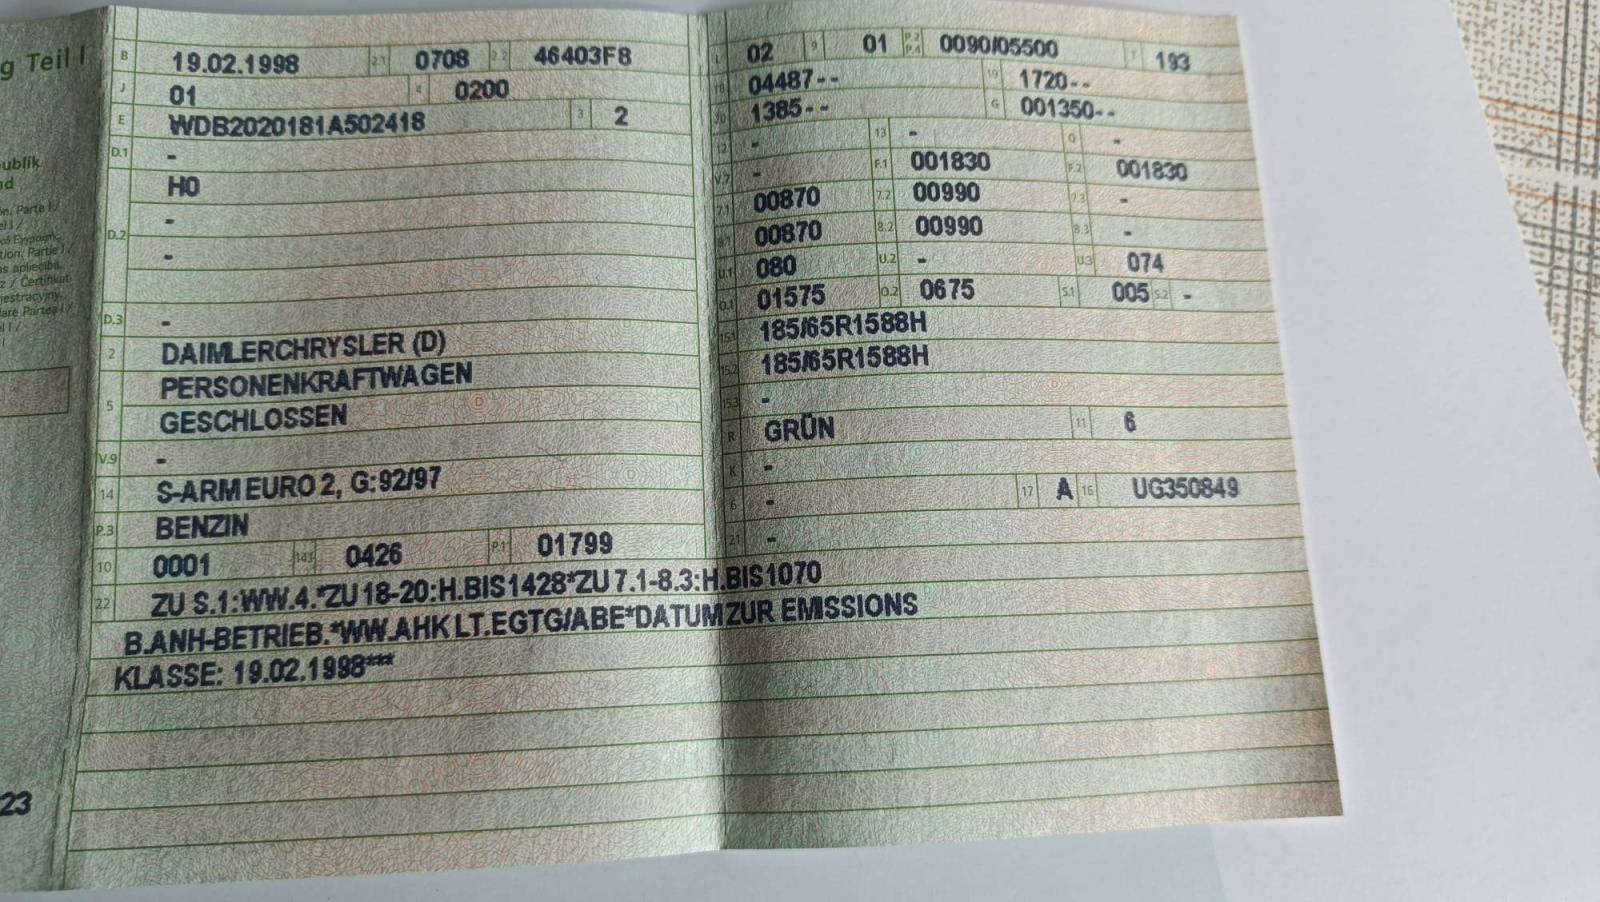 g Teil I
ublik
nd
on. Parte I /
el I /
tion. Partie I /
as apliecība.
z / Certifikat
jestracyjny.
lare Partea I /
23
B 19.02.1998 2.1 0708 2.2 46403F8
J 01 4 0200
E WDB2020181A502418 3 2
D.1 -
H0
D.2 -
-
D.3 -
2 DAIMLERCHRYSLER (D)
5 PERSONENKRAFTWAGEN
GESCHLOSSEN
V.9 -
14 S-ARM EURO 2, G:92/97
P.3 BENZIN
10 0001 14.1 0426 P.1 01799
L 02 9 01 P.2 P.4 0090/05500 T 193
18 04487-- 19 1720--
20 1385-- G 001350--
12 - 13 - Q -
V.7 - F.1 001830 F.2 001830
7.1 00870 7.2 00990 7.3 -
8.1 00870 8.2 00990 8.3 -
U.1 080 U.2 - U.3 074
O.1 01575 O.2 0675 S.1 005 S.2 -
15.1 185/65R1588H
15.2 185/65R1588H
15.3 -
R GRÜN 11 6
K -
6 - 17 A 16 UG350849
21 -
22 ZU S.1:WW.4.*ZU 18-20:H.BIS1428*ZU 7.1-8.3:H.BIS1070
B.ANH-BETRIEB.*WW.AHK LT.EGTG/ABE*DATUM ZUR EMISSIONS
KLASSE: 19.02.1998***